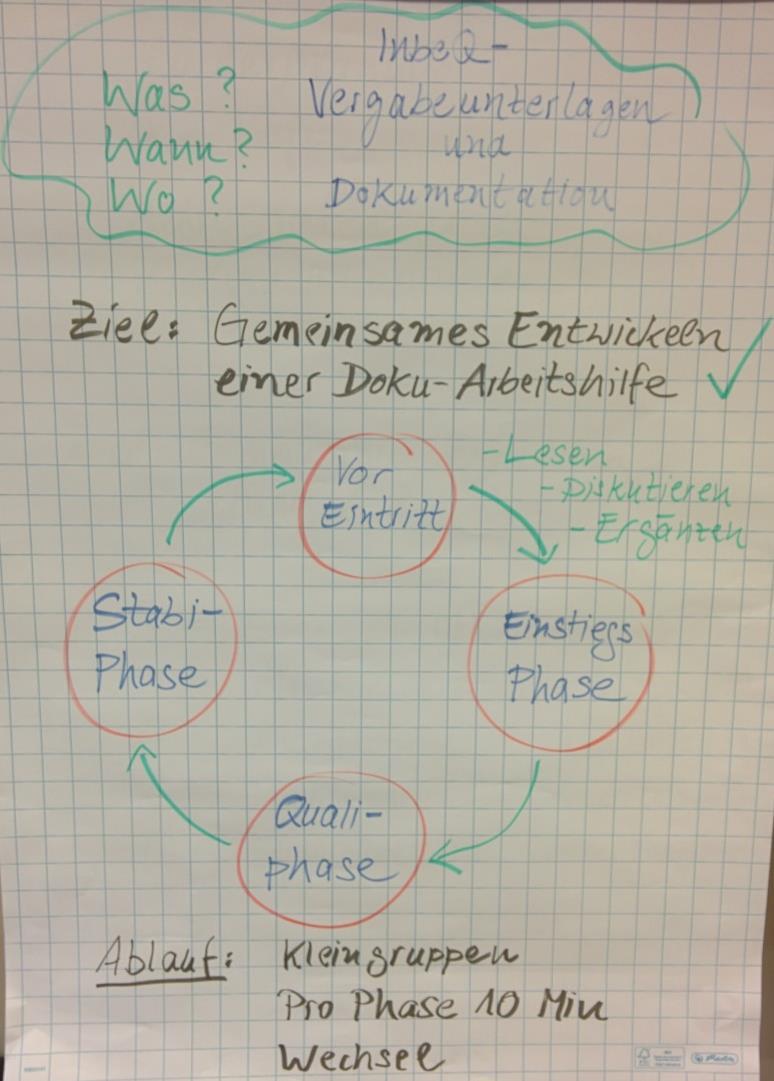 Was ?
Wann ?
Wo ?
InbeQ-
Vergabeunterlagen
und
Dokumentation
Ziel: Gemeinsames Entwickeln
einer Doku-Arbeitshilfe
Vor
Eintritt
- Lesen
- Diskutieren
- Ergänzen
Einstiegs
Phase
Quali-
phase
Stabi-
Phase
Ablauf: Kleingruppen
Pro Phase 10 Min
Wechsel